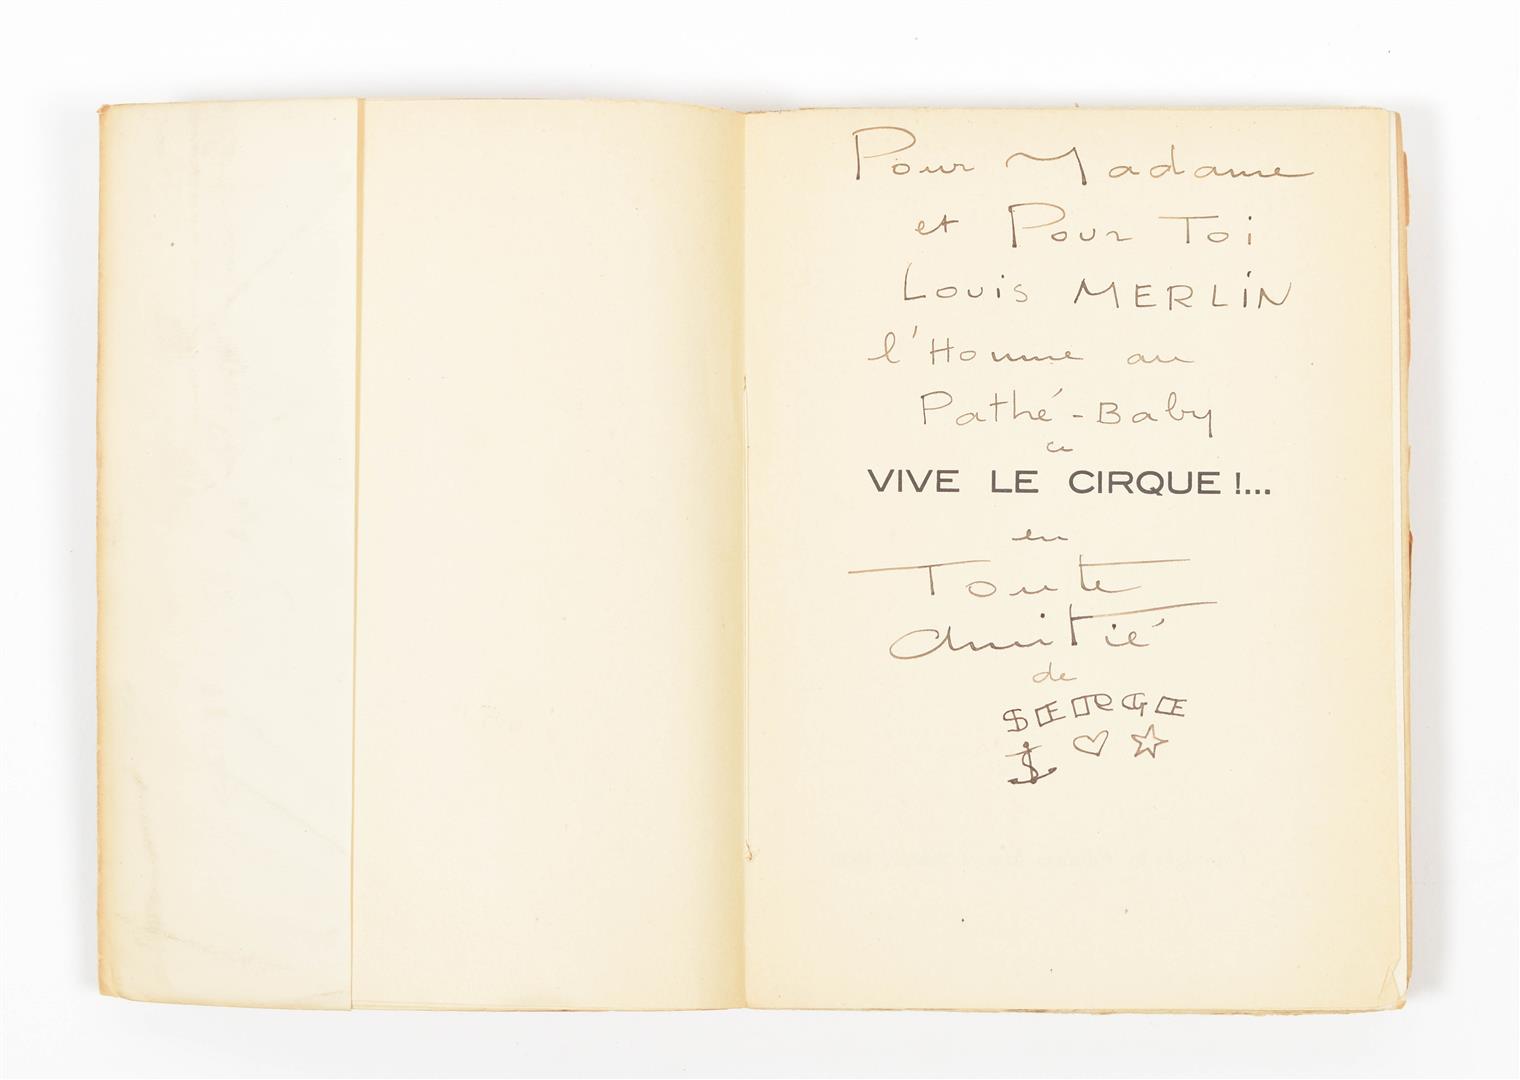 Pour Madame
et Pour Toi
Louis MERLIN
l'Homme au
Pathé-Baby
ce
VIVE LE CIRQUE !...
en
Toute
amitié
de
SERGE